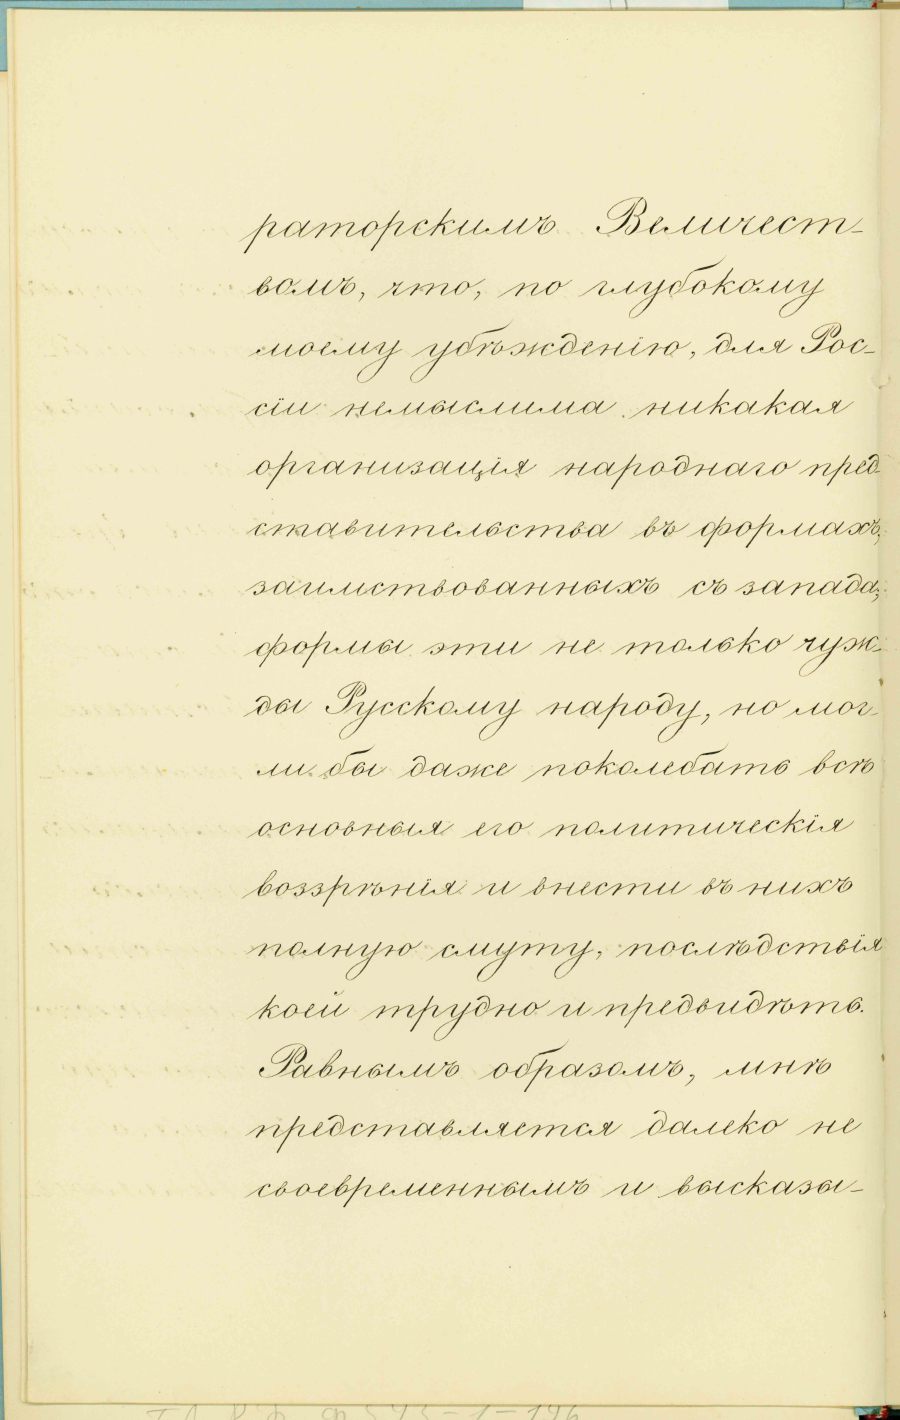 раторскимъ Величест-
вомъ, что, по глубокому
моему убѣжденію, для Рос-
сіи немыслима никакая
организація народнаго пред-
ставительства въ формахъ,
заимствованныхъ съ запада;
формы эти не только чуж-
ды Русскому народу, но мог-
ли бы даже поколебать всѣ
основныя его политическія
воззрѣнія и внести въ нихъ
полную смуту, послѣдствія
коей трудно и предвидѣть.
Равнымъ образомъ, мнѣ
представляется далеко не
своевременнымъ и высказы-